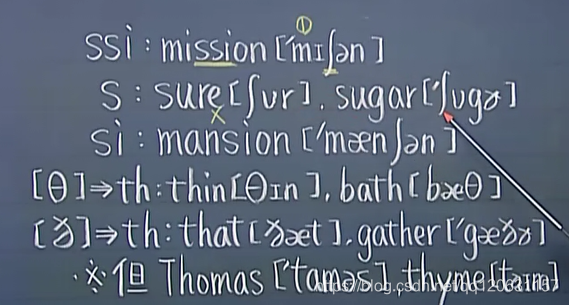 ①
ssi : mission [ˈmɪʃən]
s : sure [ʃʊr] . sugar [ˈʃʊgɚ]
×
si : mansion [ˈmænʃən]
[θ] ⇒ th : thin [θɪn] , bath [bæθ]
[ð] ⇒ th : that [ðæt] , gather [ˈgæðɚ]
·※但 Thomas [ˈtɑməs] thyme [taɪm]